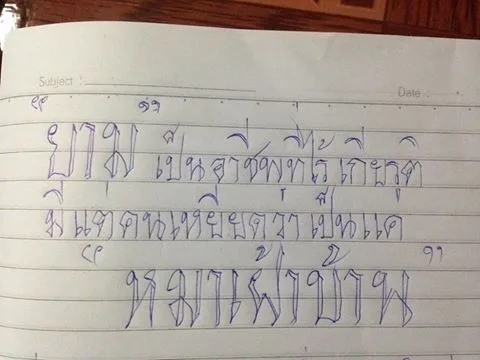 Subject : Date :
“ยาม” เป็นอาชีพที่ไร้เกียรติ
มีแต่คนเหยียดว่าเป็นแค่
“หมาเฝ้าบ้าน”